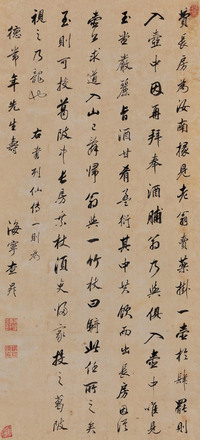 費長房為汝南掾見老翁賣藥掛一壺於肆罷則
入壺中因再拜奉酒脯翁乃與俱入壺中唯見
玉堂嚴麗旨酒甘肴盈衍其中共飲而出長房因從
壺公求道入山辭歸翁與一竹杖曰騎此任所之矣
至則可投葛陂中長房乘杖須臾歸家投之葛陂
視之乃龍也 右書列仙傳一則為
德常年先生壽 海寧查昇